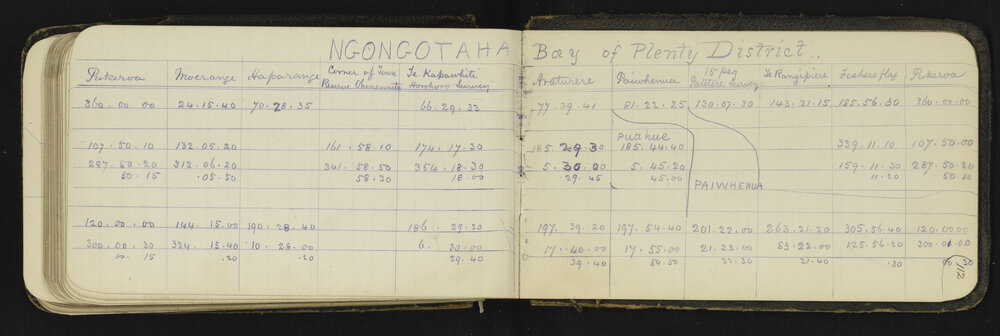 NGONGOTAHA Bay of Plenty District
Pukeroa Moerangi Haparangi Corner of Town Te Kapawhite Aratiware Paiwhenua 15 peg Te Rangipiere Fishers flag Pukeroa
Survey Patetere Survey
360.00.00 24.15.40 70.28.35 66.29.33 77.39.41 81.22.25 130.07.30 143.21.15 185.56.30 360.00.00
puahue
107.50.10 132.05.20 161.58.10 174.17.30 185.29.30 185.44.40 339.11.10 107.50.00
287.50.20 312.06.20 341.58.50 354.18.30 5.30.00 5.45.20 159.11.30 287.50.20
50.15 .05.50 58.30 18.00 29.45 45.00 11.20 50.10
PAIWHENUA
120.00.00 144.15.00 190.28.40 186.29.20 197.39.20 197.54.40 201.22.00 263.21.20 305.56.40 120.00.00
300.00.30 324.15.40 10.28.00 6.30.00 17.40.00 17.55.00 21.23.00 83.22.00 125.56.20 300.01.00
00.15 .20 .20 29.40 39.40 54.50 22.30 21.40 .30 00.30
112